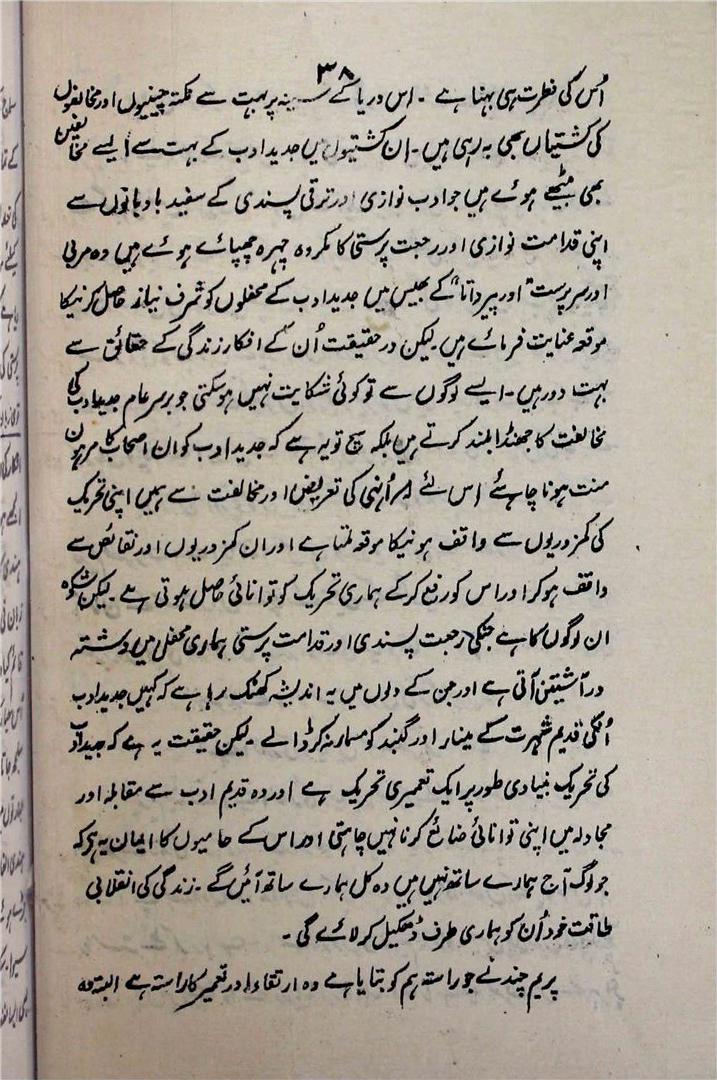 ۳۸
اُس کی فطرت ہی بہنا ہے ۔ اس دریا کے سینہ پر بہت سے نکتہ چینیوں اور مخالفوں
کی کشتیاں بھی بہ رہی ہیں ۔ ان کشتیوں میں جدید ادب کے بہت سے ایسے مخالفین
بھی بیٹھے ہوئے ہیں جو ادب نوازی اور ترقی پسندی کے سفید بادبانوں سے
اپنی قدامت نوازی اور رجعت پرستی کا مکروہ چہرہ چھپائے ہوئے ہیں وہ مربی
اور سرپرست" اور پیر داتا" کے بھیس میں جدید ادب کے محفلوں کو شرف نیاز حاصل کرنیکا
موقعہ عنایت فرماتے ہیں ۔ لیکن در حقیقت اُن کے افکار زندگی کے حقائق سے
بہت دور ہیں ۔ ایسے لوگوں سے تو کوئی شکایت نہیں ہو سکتی جو برسر عام جدید ادب کی
مخالفت کا جھنڈا بلند کرتے ہیں بلکہ سچ تو یہ ہے کہ جدید ادب کو ان اصحاب کا مرہون
منت ہونا چاہئے اس لئے کہ اُنہی کی تعریض اور مخالفت سے ہمیں اپنی تحریک
کی کمزوریوں سے واقف ہونیکا موقعہ ملتا ہے اور ان کمزوریوں اور نقائص سے
واقف ہو کر اور اس کو رفع کر کے ہماری تحریک کو توانائی حاصل ہوتی ہے ۔ لیکن شکوہ
ان لوگوں کا ہے جنکی رجعت پسندی اور قدامت پرستی ہماری محفل میں دشنہ
در آستین آتی ہے اور جن کے دلوں میں یہ اندیشہ کھٹک رہا ہے کہ کہیں جدید ادب
اُنکی قدیم شہرت کے مینار اور گنبد کو مسمار نہ کر ڈالے ۔ لیکن حقیقت یہ ہے کہ جدید ادب
کی تحریک بنیادی طور پر ایک تعمیری تحریک ہے اور وہ قدیم ادب سے مقابلہ اور
مجادلہ میں اپنی توانائی ضائع کرنا نہیں چاہتی اور اس کے حامیوں کا ایمان یہ ہی کہ
جو لوگ آج ہمارے ساتھ نہیں ہیں وہ کل ہمارے ساتھ آئیں گے ۔ زندگی کی انقلابی
طاقت خود اُن کو ہماری طرف ڈھکیل کر لائے گی ۔
پریم چند نے جو راستہ ہم کو بتایا ہے وہ ارتقاء اور تعمیر کا راستہ ہے البتہ وہ